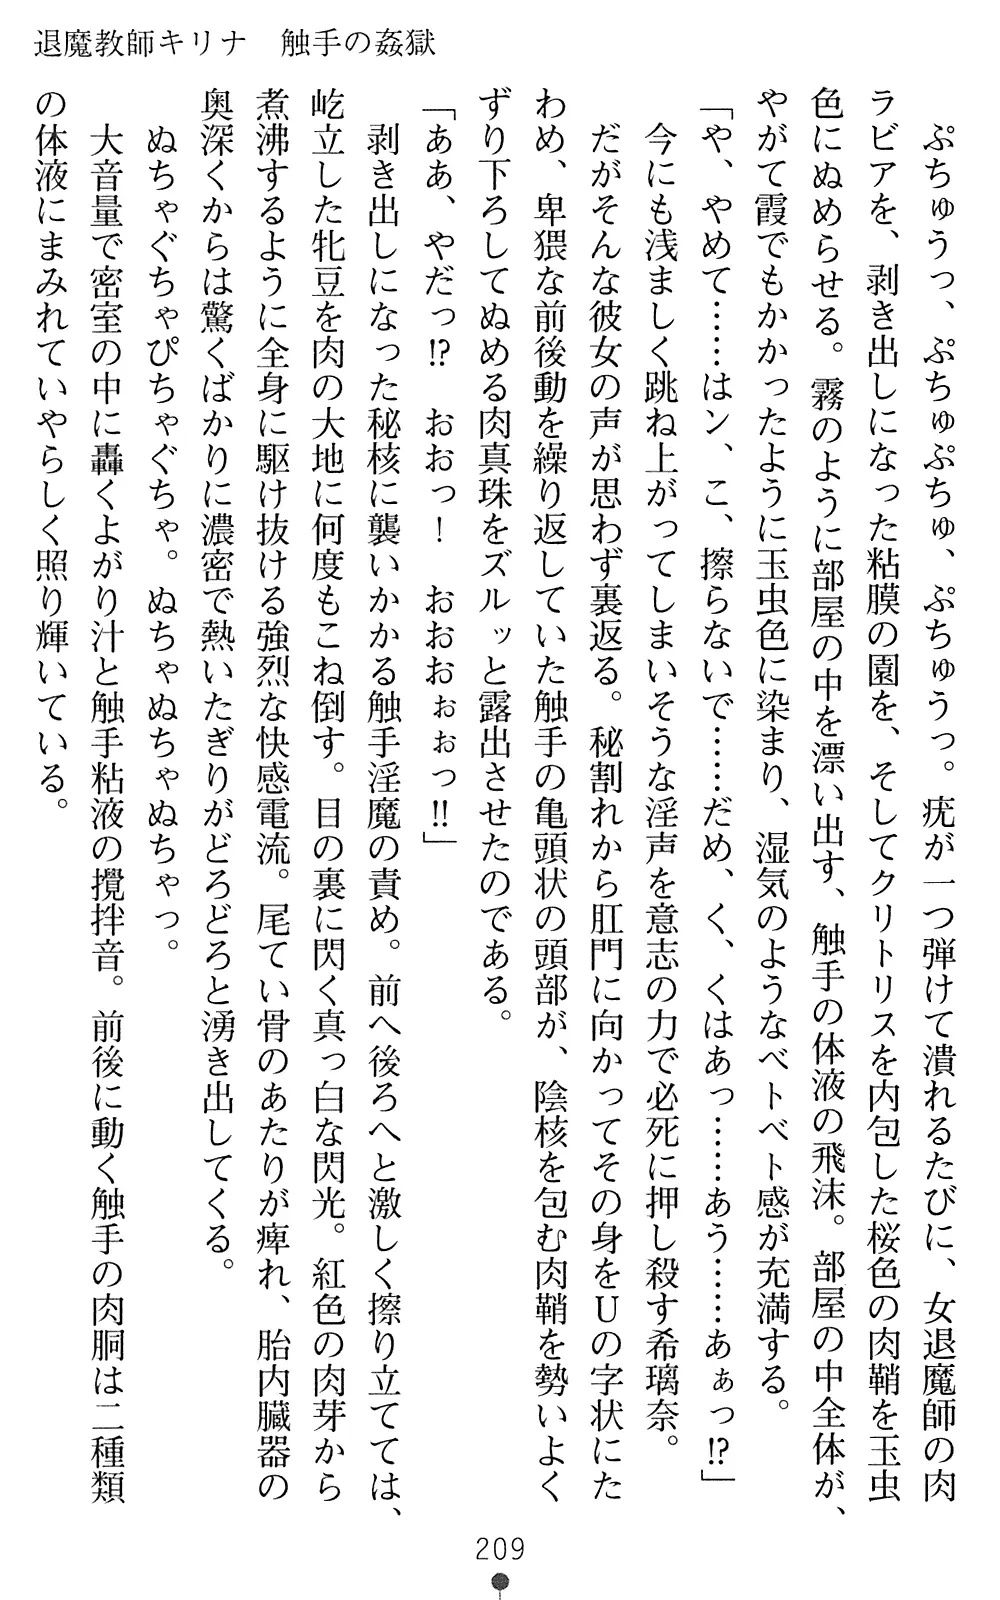 退魔教師キリナ　触手の姦獄
　ぷちゅうっ、ぷちゅぷちゅ、ぷちゅうっ。疣が一つ弾けて潰れるたびに、女退魔師の肉
ラビアを、剥き出しになった粘膜の園を、そしてクリトリスを内包した桜色の肉鞘を玉虫
色にぬめらせる。霧のように部屋の中を漂い出す、触手の体液の飛沫。部屋の中全体が、
やがて霞でもかかったように玉虫色に染まり、湿気のようなベトベト感が充満する。
「や、やめて……はン、こ、擦らないで……だめ、く、くはあっ……あう……あぁっ!?」
　今にも浅ましく跳ね上がってしまいそうな淫声を意志の力で必死に押し殺す希璃奈。
　だがそんな彼女の声が思わず裏返る。秘割れから肛門に向かってその身をＵの字状にた
わめ、卑猥な前後動を繰り返していた触手の亀頭状の頭部が、陰核を包む肉鞘を勢いよく
ずり下ろしてぬめる肉真珠をズルッと露出させたのである。
「ああ、やだっ!?　おおっ！　おおおぉぉっ!!」
　剥き出しになった秘核に襲いかかる触手淫魔の責め。前へ後ろへと激しく擦り立てては、
屹立した牝豆を肉の大地に何度もこね倒す。目の裏に閃く真っ白な閃光。紅色の肉芽から
煮沸するように全身に駆け抜ける強烈な快感電流。尾てい骨のあたりが痺れ、胎内臓器の
奥深くからは驚くばかりに濃密で熱いたぎりがどろどろと湧き出してくる。
　ぬちゃぐちゃぴちゃぐちゃ。ぬちゃぬちゃぬちゃっ。
　大音量で密室の中に轟くよがり汁と触手粘液の攪拌音。前後に動く触手の肉胴は二種類
の体液にまみれていやらしく照り輝いている。
209